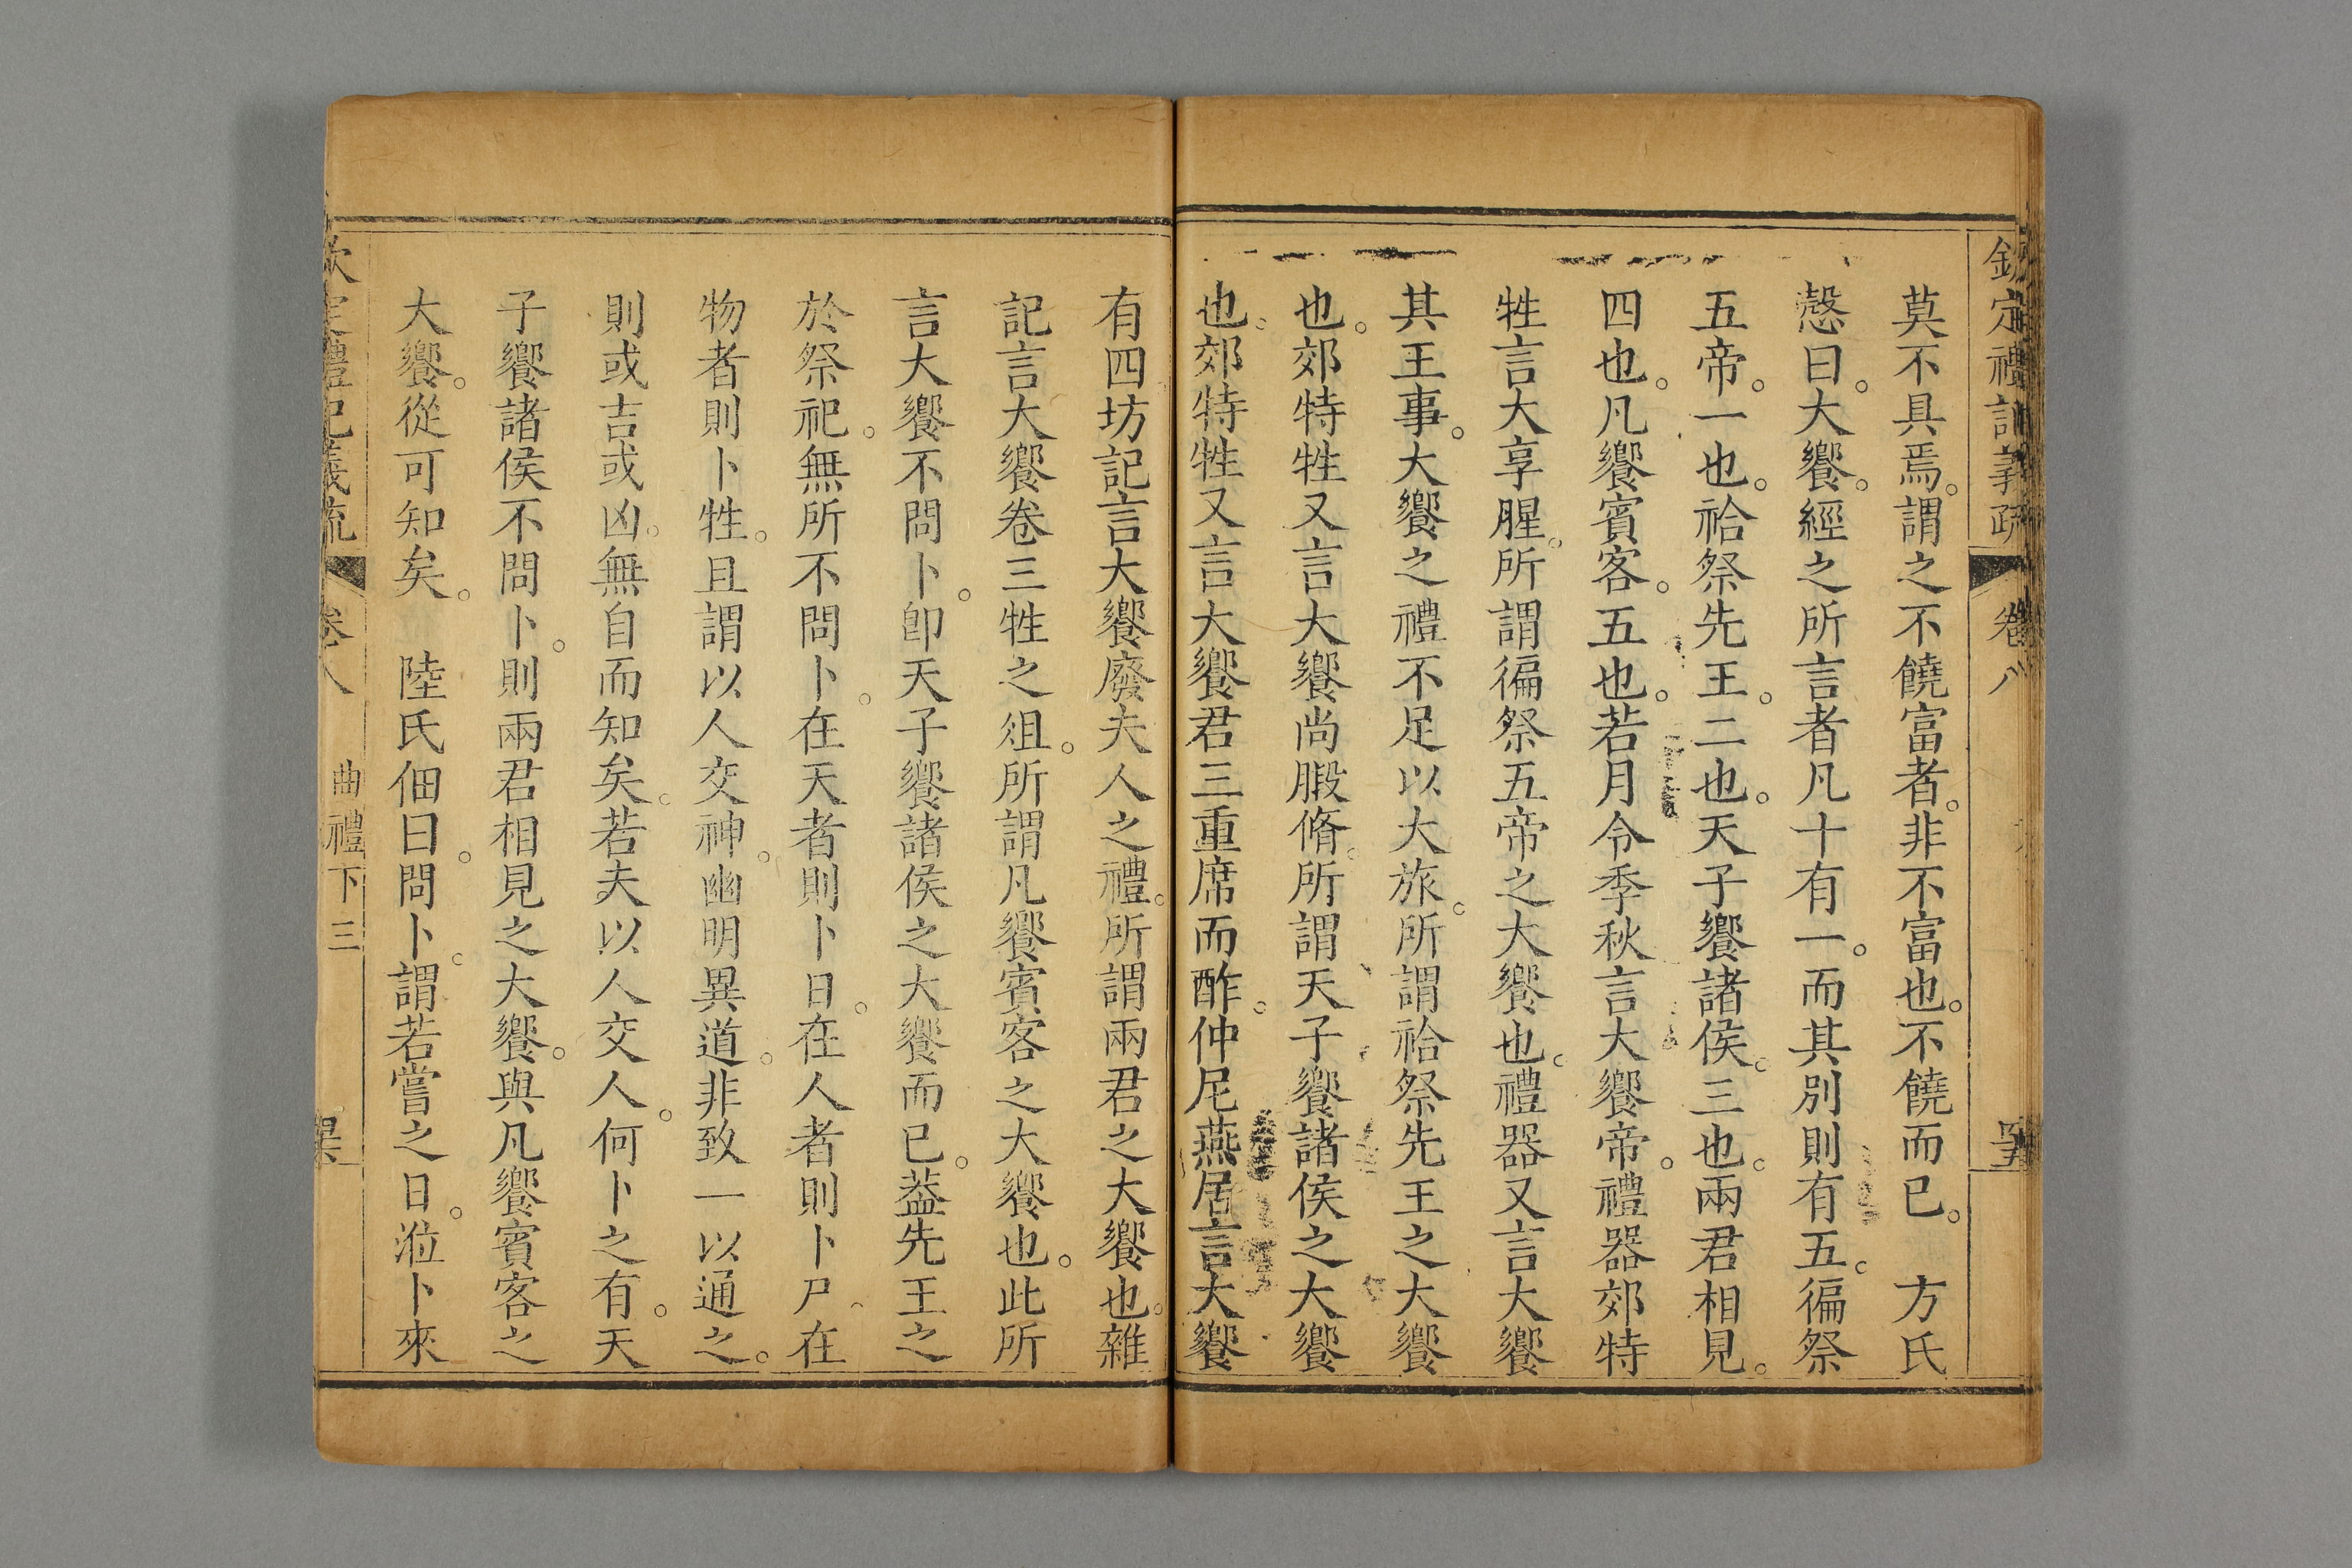 欽定禮記義疏 卷八 
莫不具焉。謂之不饒富者。非不富也。不饒而已。 方氏
慤曰。大饗。經之所言者凡十有一。而其別則有五。徧祭
五帝。一也。祫祭先王。二也。天子饗諸侯。三也。兩君相見。
四也。凡饗賓客。五也。若月令季秋言大饗帝。禮器郊特
牲言大享腥。所謂徧祭五帝之大饗也。禮器又言大饗
其王事。大饗之禮不足以大旅。所謂祫祭先王之大饗
也。郊特牲又言大饗尚腶脩。所謂天子饗諸侯之大饗
也。郊特牲又言大饗君三重席而酢。仲尼燕居言大饗
有四坊記言大饗廢夫人之禮。所謂兩君之大饗也。雜
記言大饗卷三牲之俎。所謂凡饗賓客之大饗也。此所
言大饗不問卜。卽天子饗諸侯之大饗而已。葢先王之
於祭祀。無所不問卜。在天者則卜日。在人者則卜尸。在
物者則卜牲。且謂以人交神。幽明異道。非致一以通之。
則或吉或凶。無自而知矣。若夫以人交人。何卜之有。天
子饗諸侯不問卜。則兩君相見之大饗。與凡饗賓客之
大饗。從可知矣。 陸氏佃曰。問卜。謂若嘗之日。涖卜來
欽定禮記義疏 卷八 曲禮下三